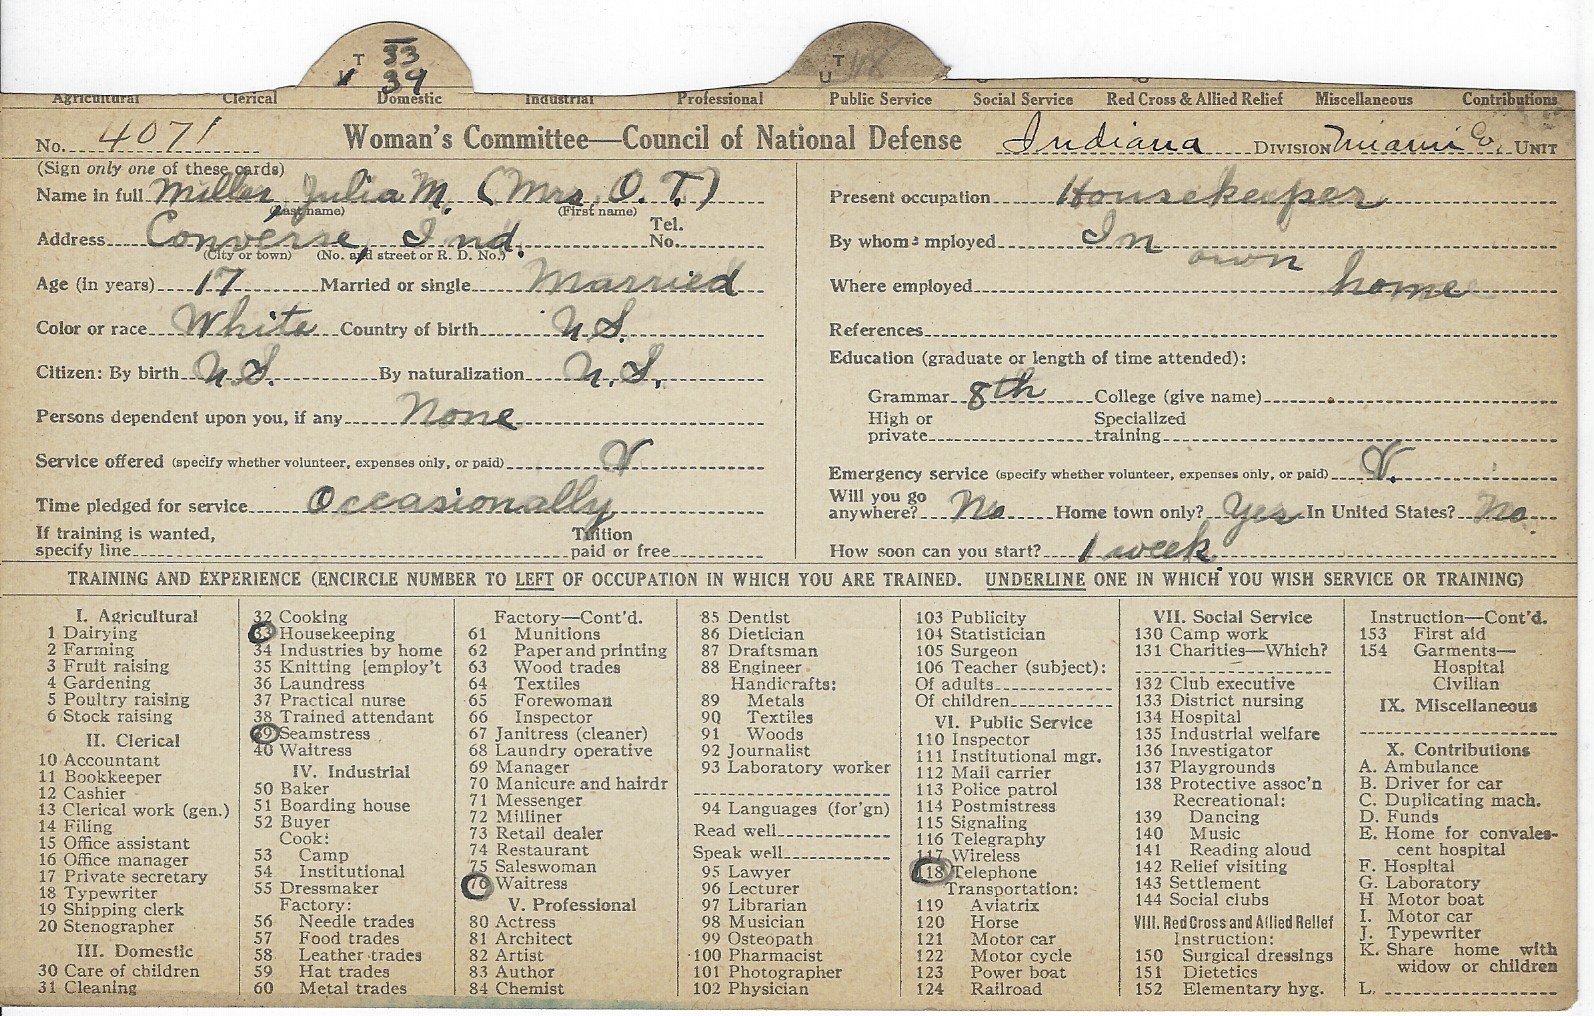 T 33
39
T
U 48
Agricultural Clerical Domestic Industrial Professional Public Service Social Service Red Cross & Allied Relief Miscellaneous Contributions
No. 4071 Woman's Committee—Council of National Defense Indiana DIVISION Miami Co. UNIT
(Sign only one of these cards)
Name in full Miller, Julia M. (Mrs. O. T.)
(Last name) (First name)
Address Converse, Ind. Tel. No.
(City or town) (No. and street or R. D. No.)
Age (in years) 17 Married or single Married
Color or race White Country of birth U.S.
Citizen: By birth U.S. By naturalization U.S.
Persons dependent upon you, if any None
Service offered (specify whether volunteer, expenses only, or paid) V
Time pledged for service Occasionally
If training is wanted,
specify line
Tuition
paid or free
Present occupation Housekeeper
By whom employed In
own
Where employed home
References
Education (graduate or length of time attended):
Grammar 8th College (give name)
High or
private
Specialized
training
Emergency service (specify whether volunteer, expenses only, or paid) V.
Will you go
anywhere? No Home town only? Yes In United States? No
How soon can you start? 1 week
TRAINING AND EXPERIENCE (ENCIRCLE NUMBER TO LEFT OF OCCUPATION IN WHICH YOU ARE TRAINED. UNDERLINE ONE IN WHICH YOU WISH SERVICE OR TRAINING)
I. Agricultural
1 Dairying
2 Farming
3 Fruit raising
4 Gardening
5 Poultry raising
6 Stock raising
II. Clerical
10 Accountant
11 Bookkeeper
12 Cashier
13 Clerical work (gen.)
14 Filing
15 Office assistant
16 Office manager
17 Private secretary
18 Typewriter
19 Shipping clerk
20 Stenographer
III. Domestic
30 Care of children
31 Cleaning
32 Cooking
33 Housekeeping
34 Industries by home
35 Knitting [employ't
36 Laundress
37 Practical nurse
38 Trained attendant
39 Seamstress
40 Waitress
IV. Industrial
50 Baker
51 Boarding house
52 Buyer
Cook:
53 Camp
54 Institutional
55 Dressmaker
Factory:
56 Needle trades
57 Food trades
58 Leather trades
59 Hat trades
60 Metal trades
Factory—Cont'd.
61 Munitions
62 Paper and printing
63 Wood trades
64 Textiles
65 Forewoman
66 Inspector
67 Janitress (cleaner)
68 Laundry operative
69 Manager
70 Manicure and hairdr
71 Messenger
72 Milliner
73 Retail dealer
74 Restaurant
75 Saleswoman
76 Waitress
V. Professional
80 Actress
81 Architect
82 Artist
83 Author
84 Chemist
85 Dentist
86 Dietician
87 Draftsman
88 Engineer
Handicrafts:
89 Metals
90 Textiles
91 Woods
92 Journalist
93 Laboratory worker
94 Languages (for'gn)
Read well
Speak well
95 Lawyer
96 Lecturer
97 Librarian
98 Musician
99 Osteopath
100 Pharmacist
101 Photographer
102 Physician
103 Publicity
104 Statistician
105 Surgeon
106 Teacher (subject):
Of adults
Of children
VI. Public Service
110 Inspector
111 Institutional mgr.
112 Mail carrier
113 Police patrol
114 Postmistress
115 Signaling
116 Telegraphy
117 Wireless
118 Telephone
Transportation:
119 Aviatrix
120 Horse
121 Motor car
122 Motor cycle
123 Power boat
124 Railroad
VII. Social Service
130 Camp work
131 Charities—Which?
132 Club executive
133 District nursing
134 Hospital
135 Industrial welfare
136 Investigator
137 Playgrounds
138 Protective assoc'n
Recreational:
139 Dancing
140 Music
141 Reading aloud
142 Relief visiting
143 Settlement
144 Social clubs
VIII. Red Cross and Allied Relief
Instruction:
150 Surgical dressings
151 Dietetics
152 Elementary hyg.
Instruction—Cont'd.
153 First aid
154 Garments—
Hospital
Civilian
IX. Miscellaneous
X. Contributions
A. Ambulance
B. Driver for car
C. Duplicating mach.
D. Funds
E. Home for convales-
cent hospital
F. Hospital
G. Laboratory
H Motor boat
I. Motor car
J. Typewriter
K. Share home with
widow or children
L.